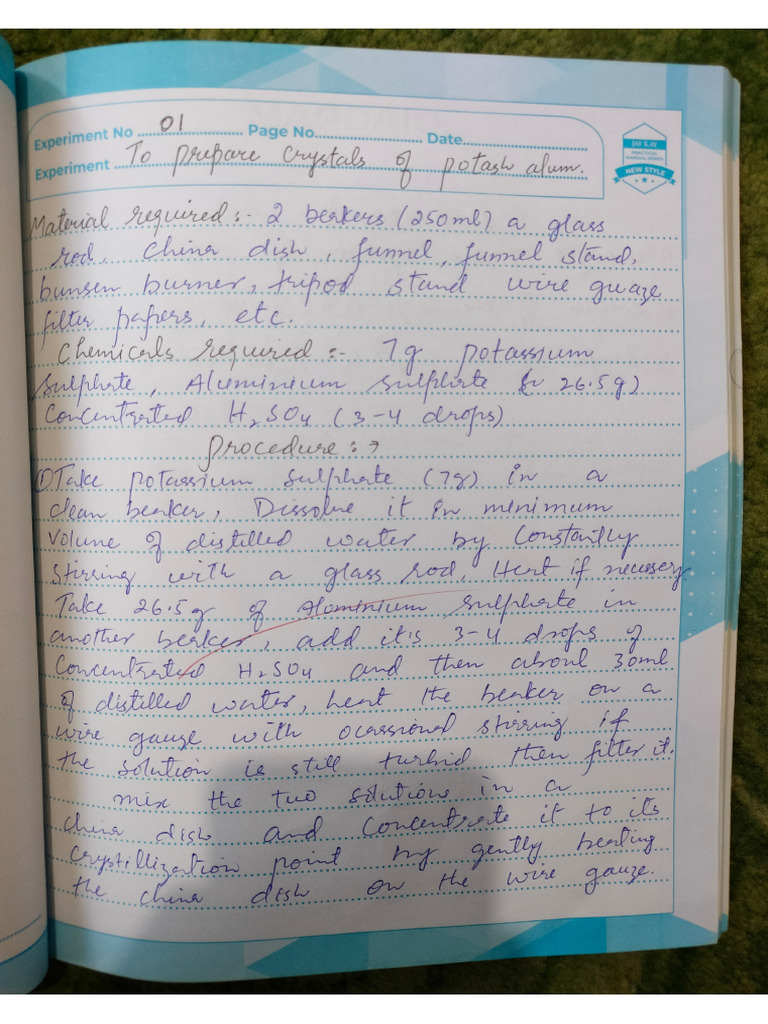 Experiment No 01 Page No. Date
Experiment To prepare crystals of potash alum.
JAY KAY
PRACTICAL
MANUAL SERIES
NEW STYLE
Material required :- 2 beakers (250ml) a glass
rod, china dish, funnel, funnel stand,
bunsen burner, tripod stand wire guaze
filter papers, etc.
Chemicals required :- 7g potassium
sulphate, Aluminium sulphate 26.5g)
Concentrated H₂SO₄ (3-4 drops)
procedure :→
① Take potassium sulphate (7g) in a
clean beaker, Dissolve it in minimum
volume of distilled water by Constantly
stirring with a glass rod, Heat if necessery
Take 26.5g of Aluminium sulphate in
another beaker, add it's 3-4 drops of
Concentrated H₂SO₄ and then about 30ml
of distilled water, heat the beaker on a
wire gauze with ocassional stirring if
the solution is still turbid then filter it.
mix the two solutions in a
china dish and concentrate it to its
crystillization point by gently heating
the china dish on the wire gauze.